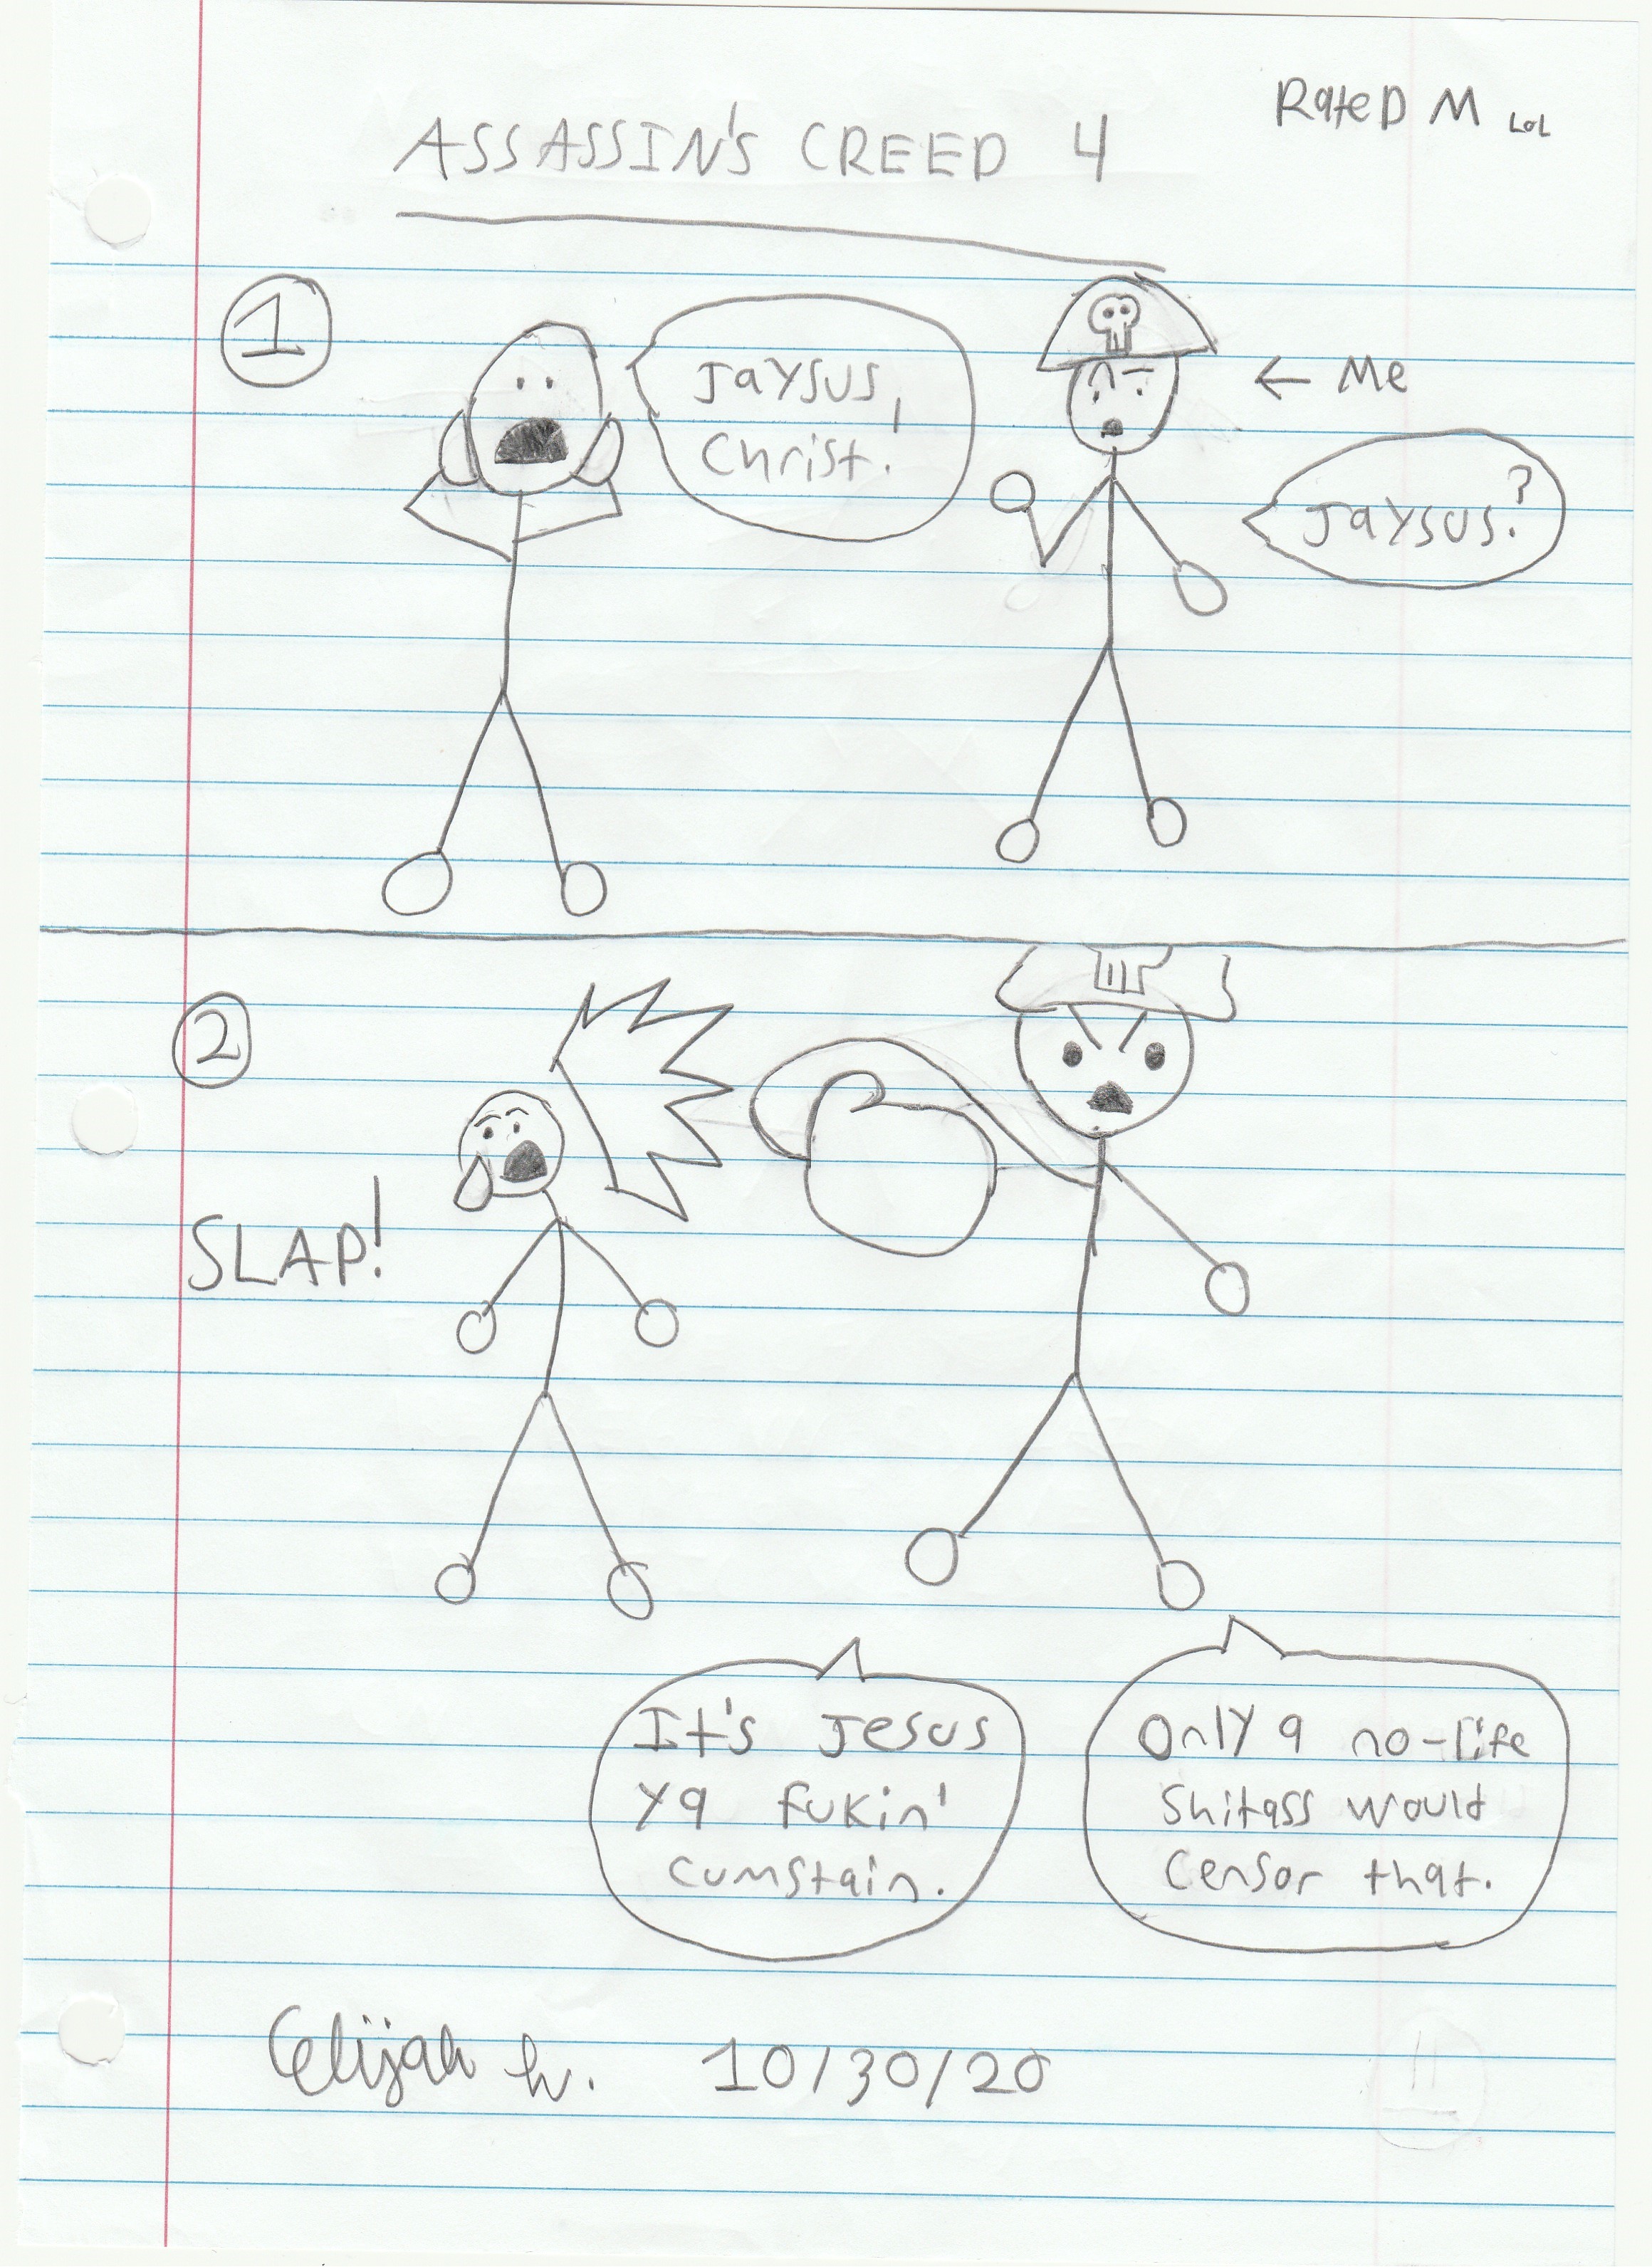 Rated M LOL
ASSASSIN'S CREED 4
1
Jaysus
Christ!
← Me
Jaysus?
2
SLAP!
It's Jesus
ya fukin'
cumstain.
Only a no-life
shitass would
censor that.
Elijah h. 10/30/20